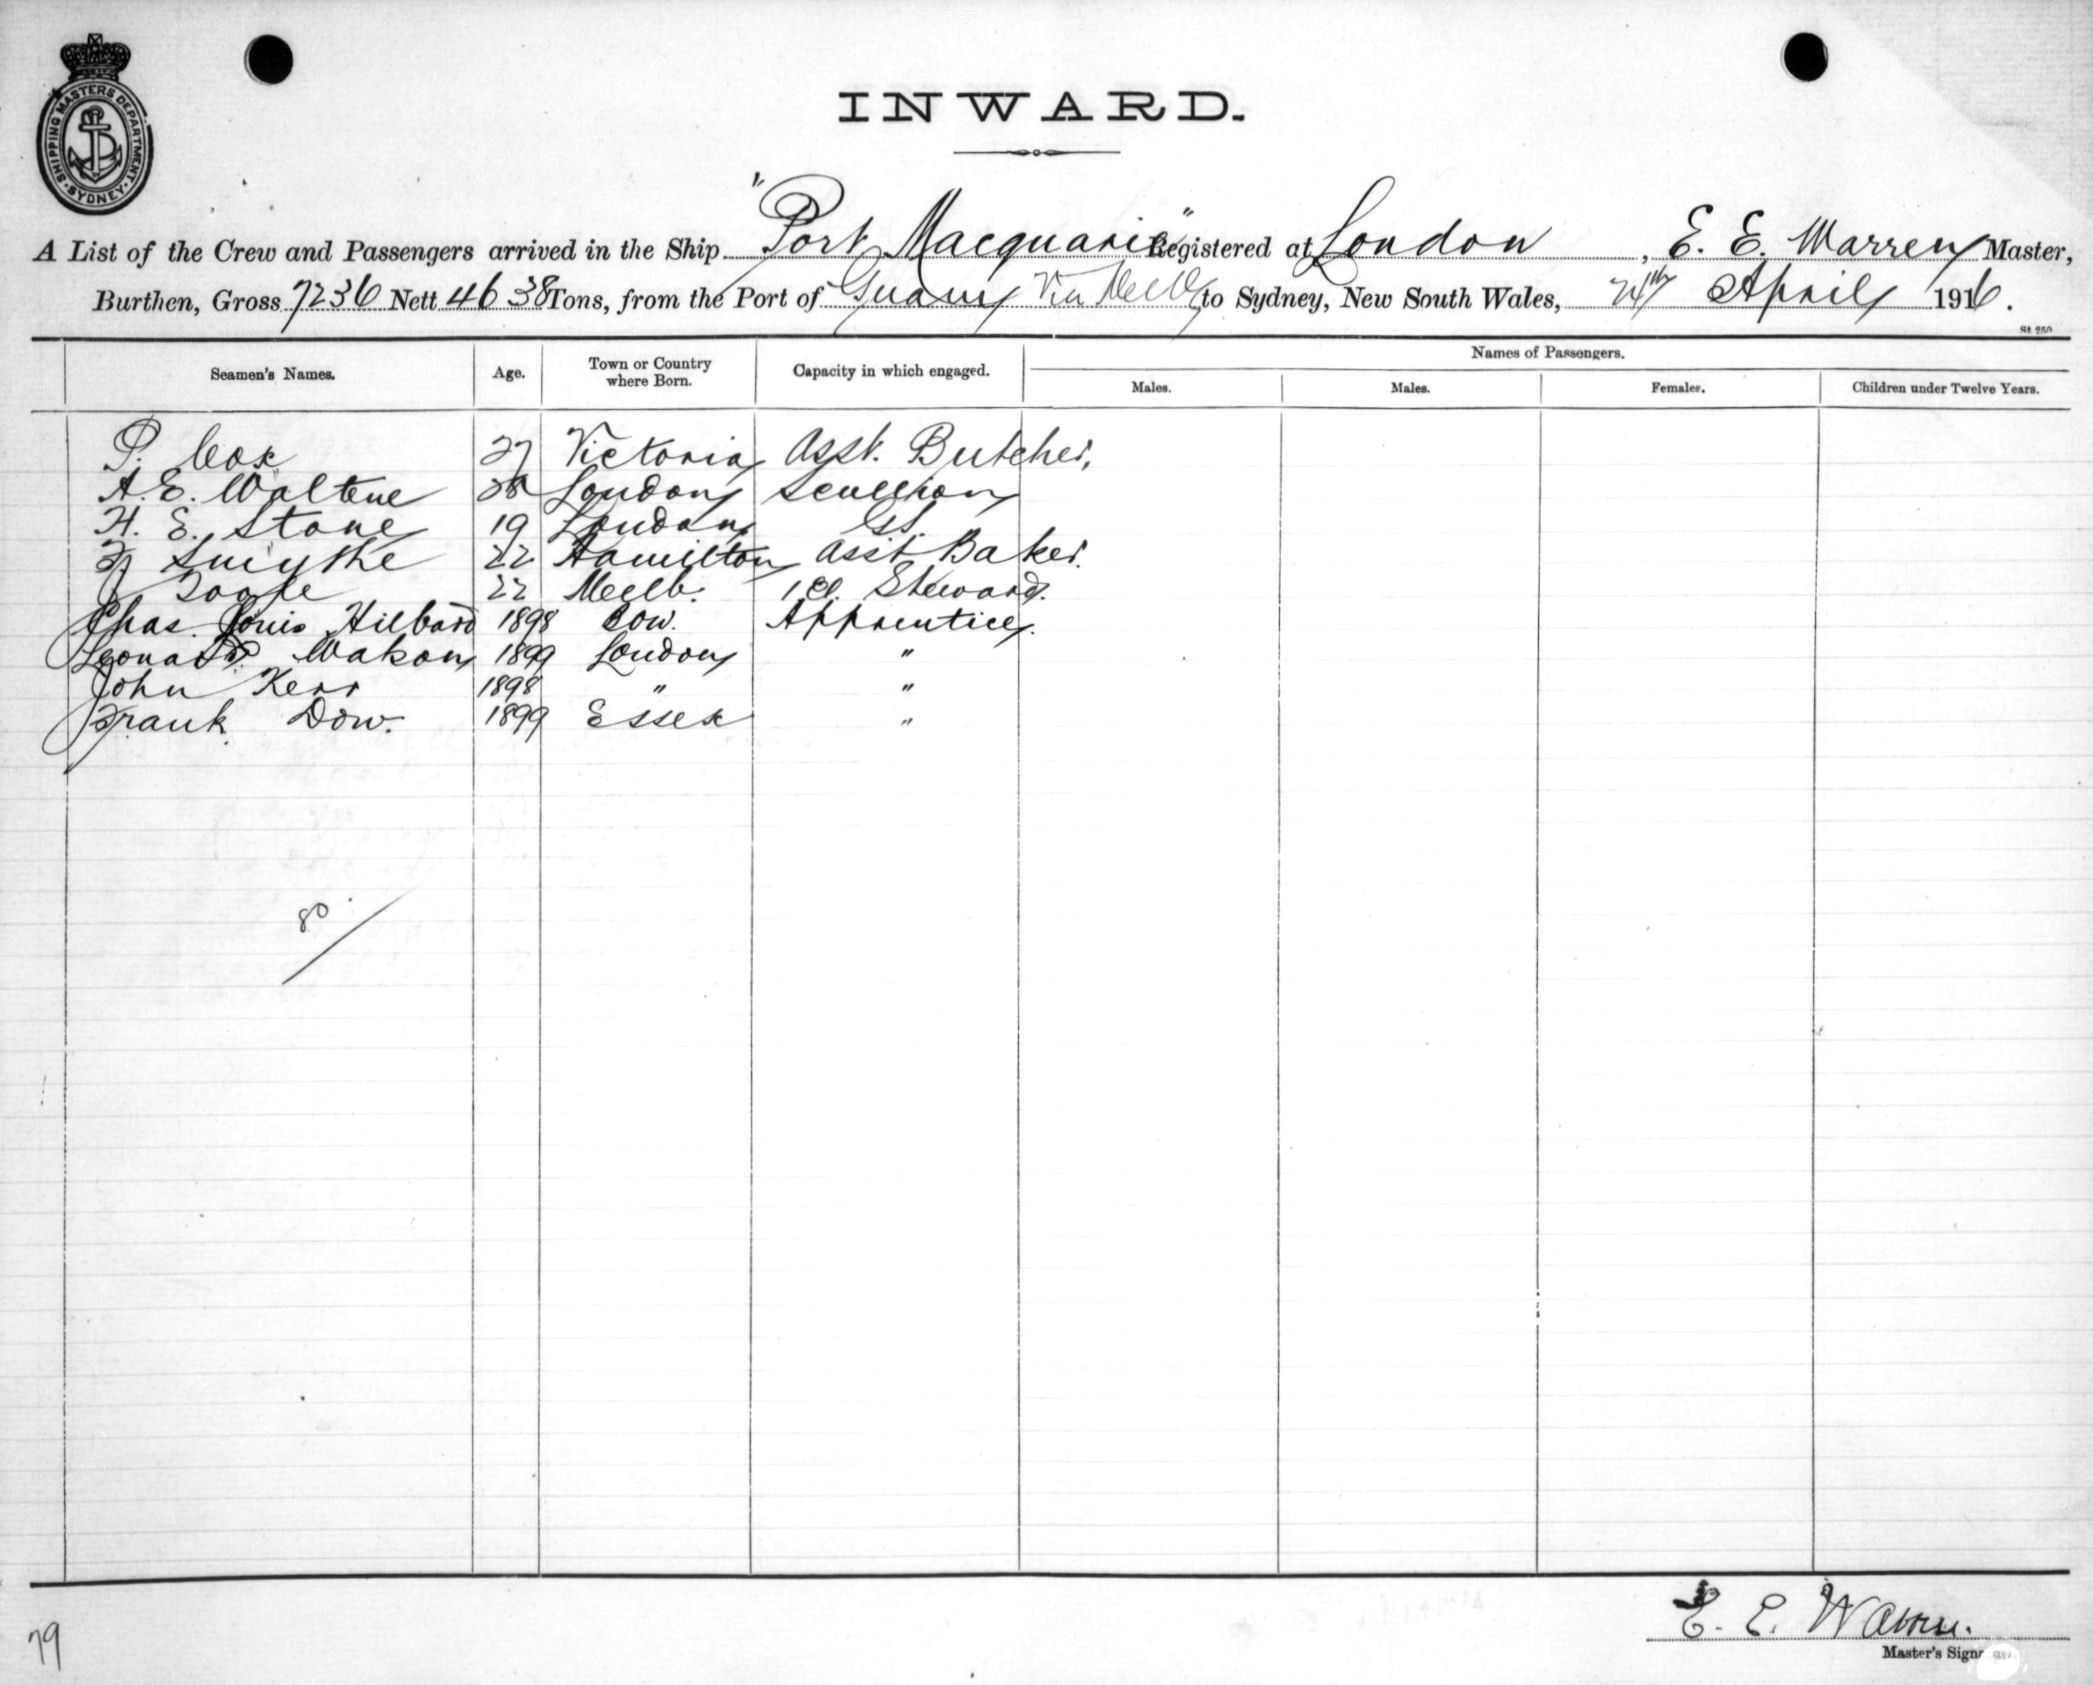 SHIPPING MASTERS DEPARTMENT. SYDNEY
INWARD.
A List of the Crew and Passengers arrived in the Ship "Port Macquarie" Registered at London, E. E. Warren Master,
Burthen, Gross 7236 Nett 4638 Tons, from the Port of Via Melb to Sydney, New South Wales, 24th April 1916.
St 250
Seamen's Names. Age. Town or Country where Born. Capacity in which engaged. Names of Passengers.
Males. Males. Females. Children under Twelve Years.
P. Cox 27 Victoria Asst. Butcher,
A. E. Waltene 28 London Scullion
H. E. Stone 19 London GS.
F Smythe 22 Hamilton Asst Baker.
J 22 Melb. 1 Cl. Steward.
Chas. Louis Hilbard 1898 Bow. Apprentice.
Leonard Wakon 1899 London "
John Kerr 1898 " "
Frank Dow. 1899 Essex "
80
E. E. Warren.
Master's
79